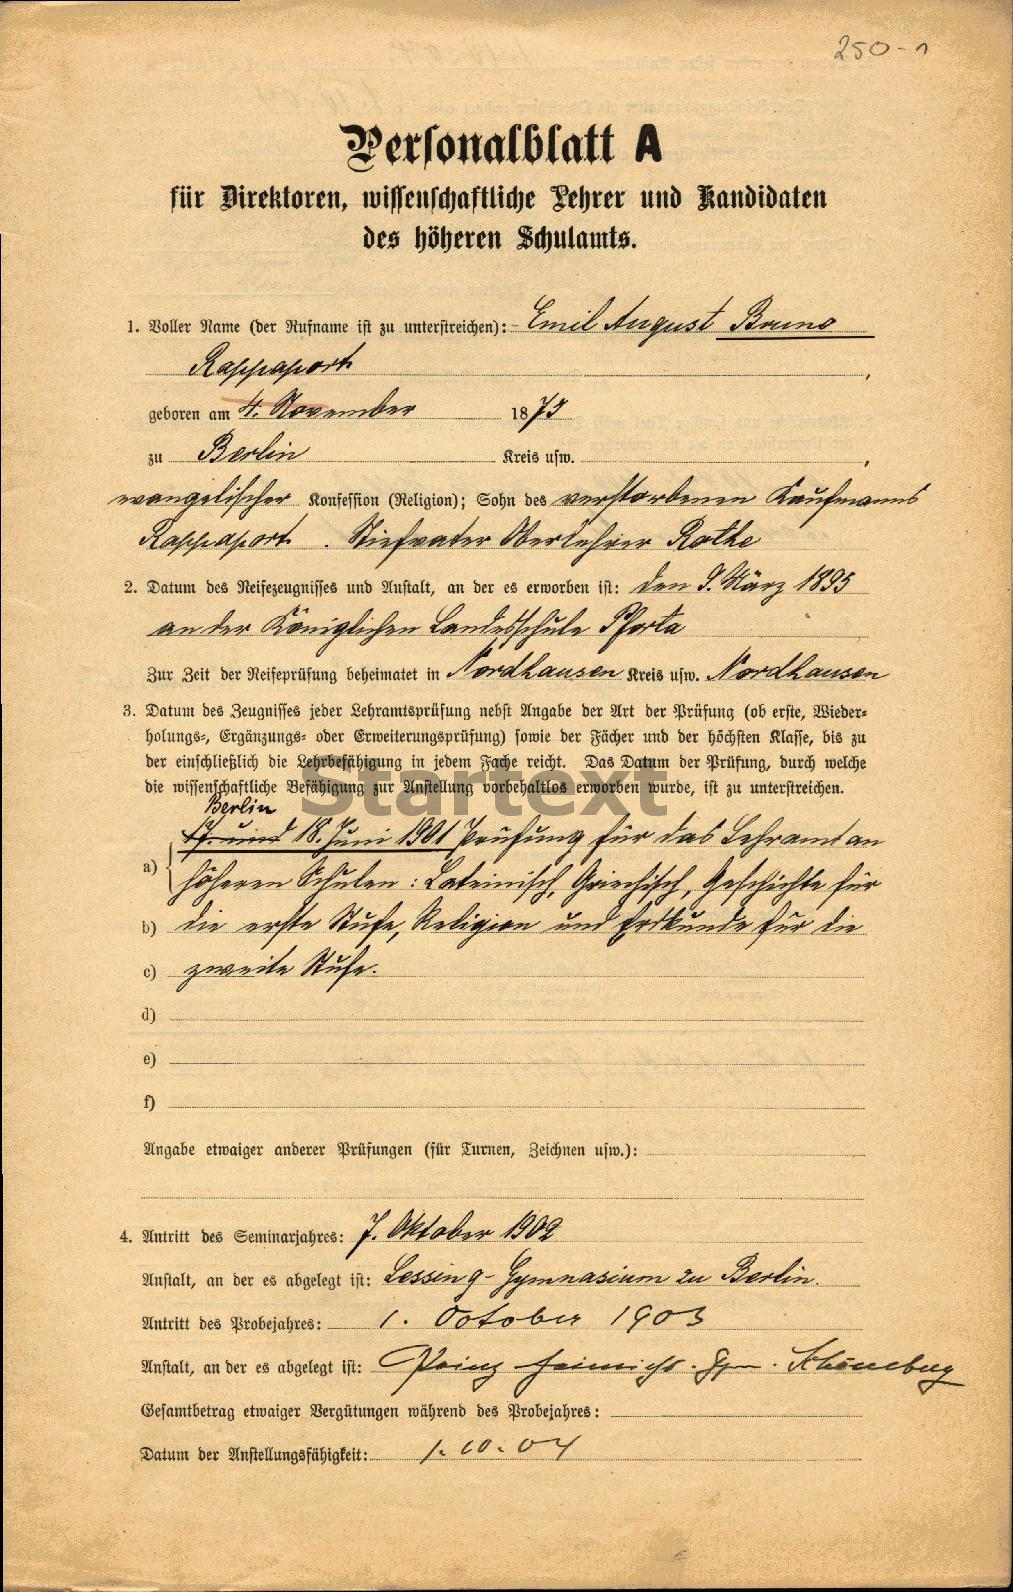 250-1
Personalblatt A
für Direktoren, wissenschaftliche Lehrer und Kandidaten
des höheren Schulamts.
1. Voller Name (der Rufname ist zu unterstreichen): Emil August Bruno
Rappaport,
geboren am 4. November 1873
zu Berlin Kreis usw.,
evangelischer Konfession (Religion); Sohn des verstorbenen Kaufmanns
Rappaport. Stiefvater Oberlehrer Rothe
2. Datum des Reifezeugnisses und Anstalt, an der es erworben ist: den 9. März 1895
an der Königlichen Landesschule Pforta
Zur Zeit der Reifeprüfung beheimatet in Nordhausen Kreis usw. Nordhausen
3. Datum des Zeugnisses jeder Lehramtsprüfung nebst Angabe der Art der Prüfung (ob erste, Wieder-
holungs-, Ergänzungs- oder Erweiterungsprüfung) sowie der Fächer und der höchsten Klasse, bis zu
der einschließlich die Lehrbefähigung in jedem Fache reicht. Das Datum der Prüfung, durch welche
die wissenschaftliche Befähigung zur Anstellung vorbehaltlos erworben wurde, ist zu unterstreichen.
Startext
Berlin
17. und 18. Juni 1901 Prüfung für das Lehramt an
a) höheren Schulen: Lateinisch, Griechisch, Geschichte für
b) die erste Stufe, Religion und Erdkunde für die
c) zweite Stufe.
d)
e)
f)
Angabe etwaiger anderer Prüfungen (für Turnen, Zeichnen usw.):
4. Antritt des Seminarjahres: 7. Oktober 1902
Anstalt, an der es abgelegt ist: Lessing-Gymnasium zu Berlin.
Antritt des Probejahres: 1. October 1903
Anstalt, an der es abgelegt ist: Prinz Heinrichs-Gym. Schöneberg
Gesamtbetrag etwaiger Vergütungen während des Probejahres:
Datum der Anstellungsfähigkeit: 1.10.04